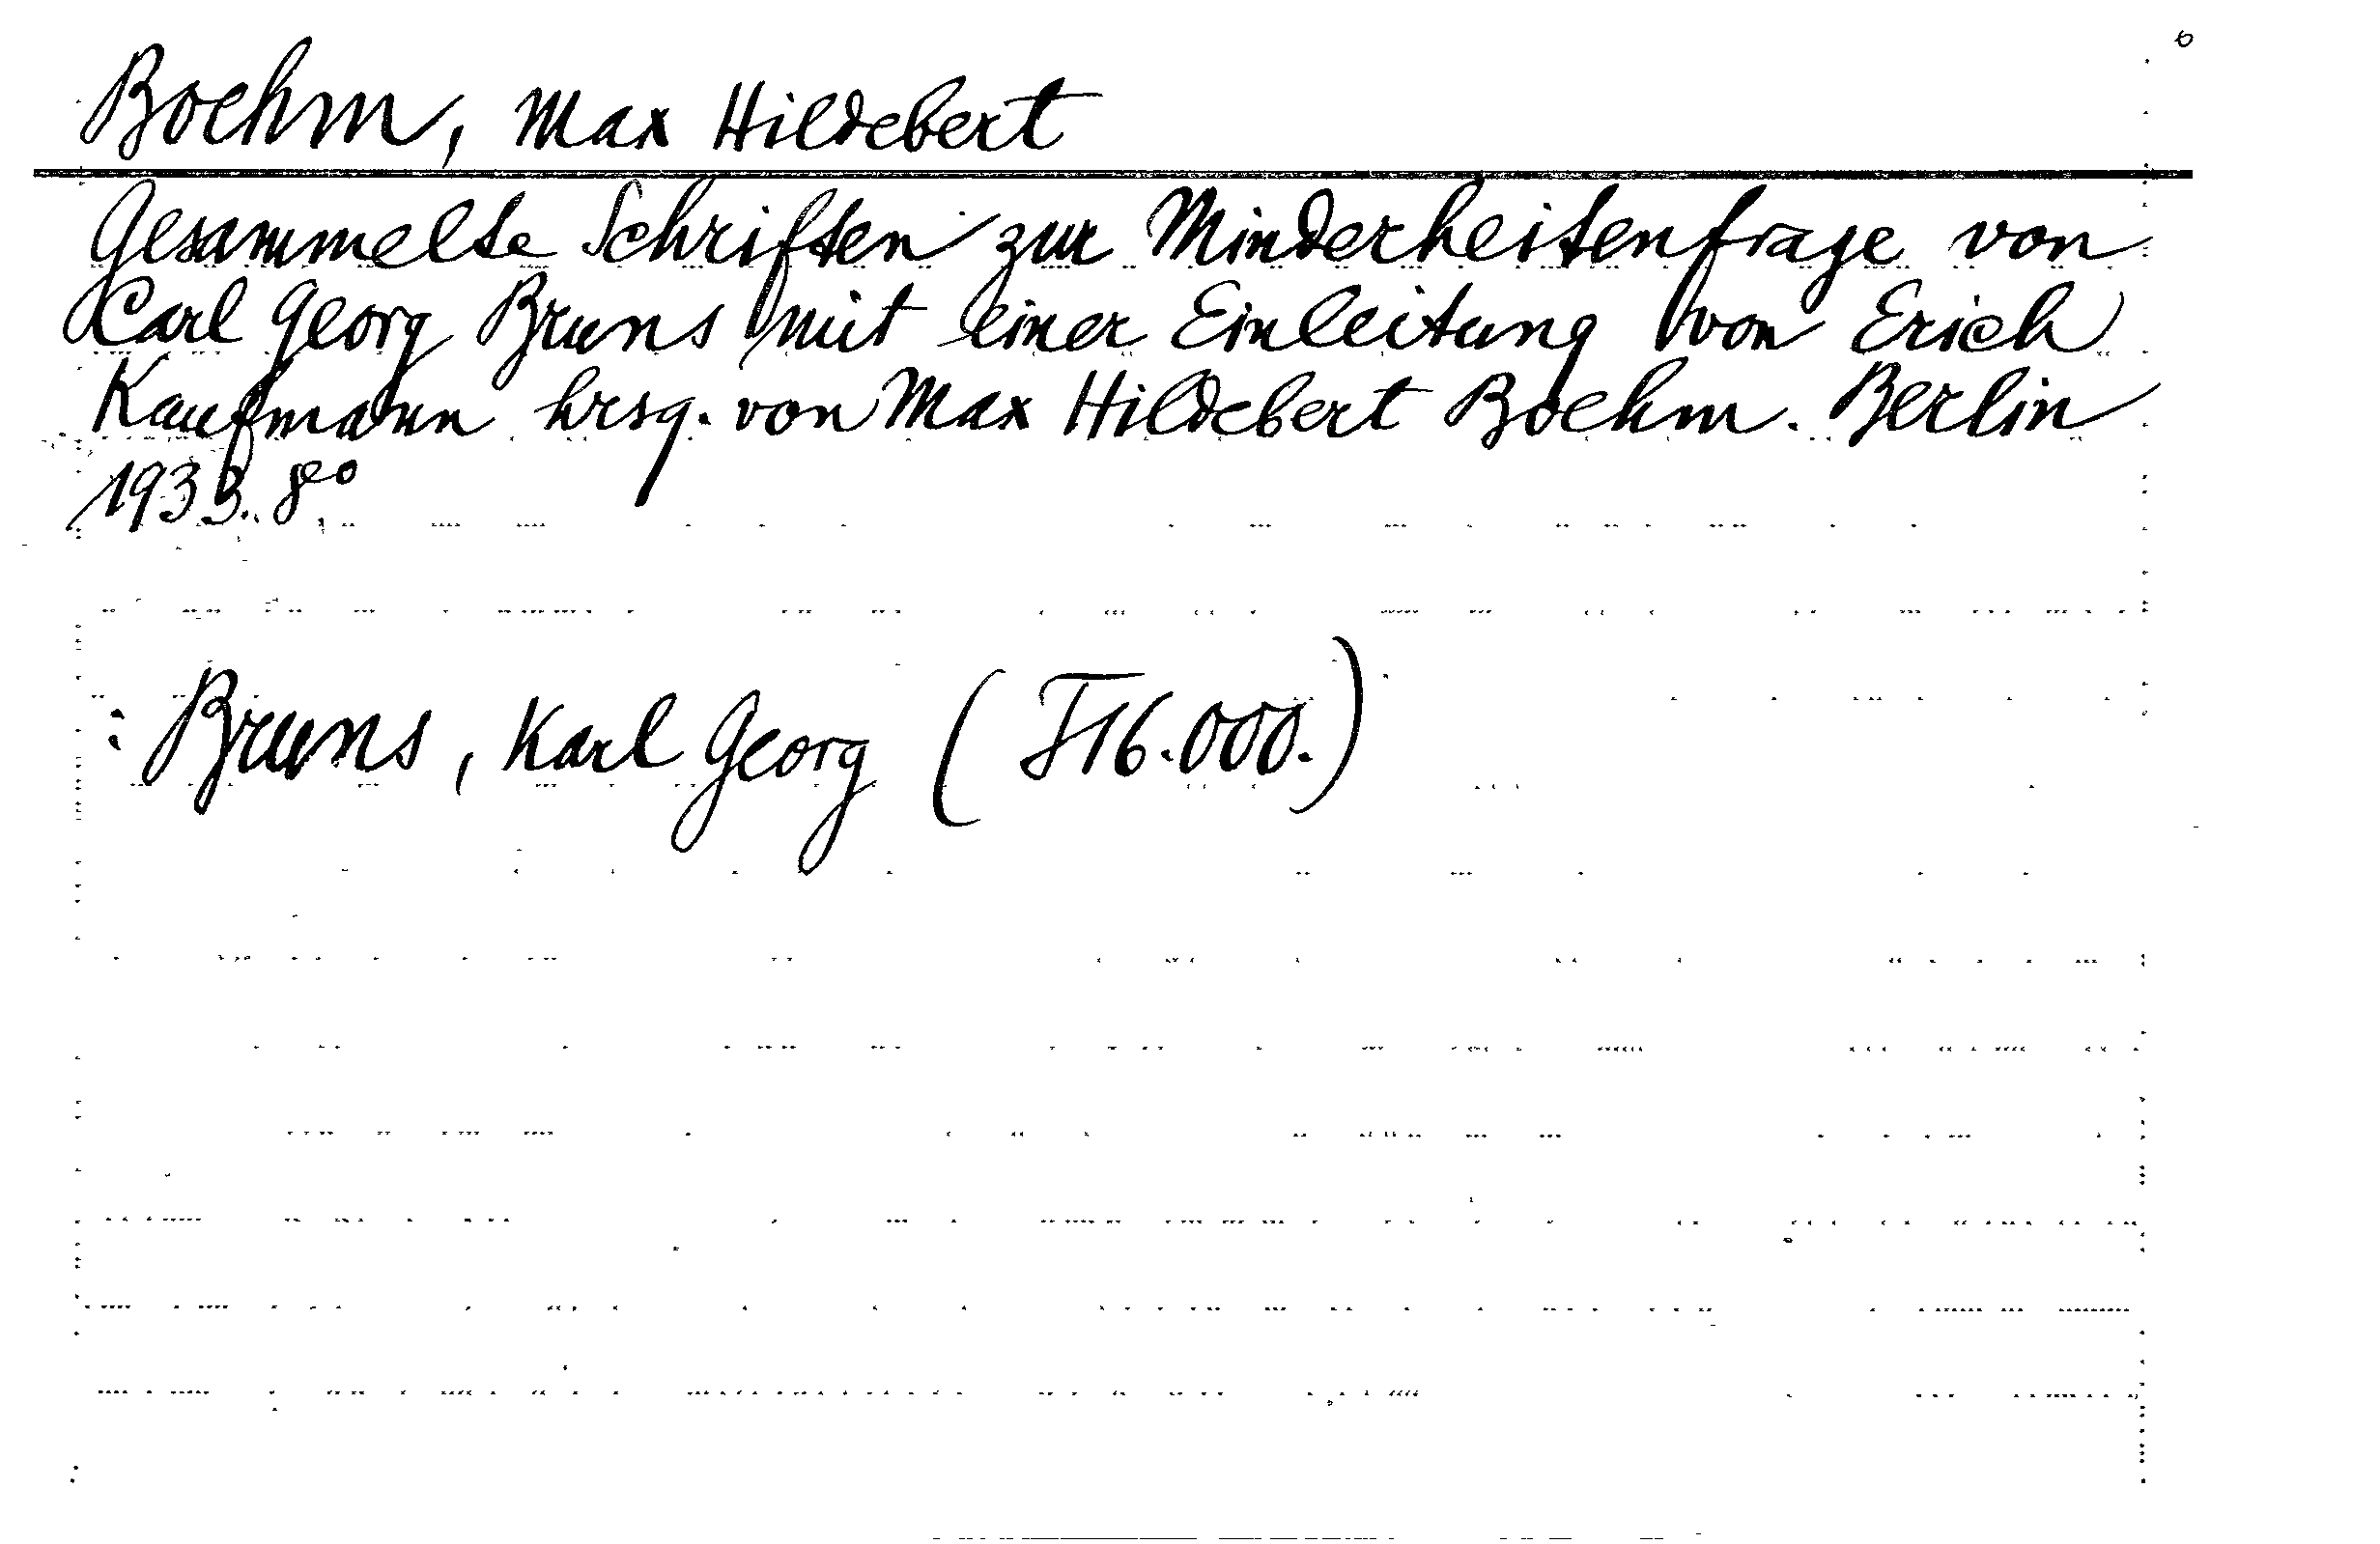 Boehm, Max Hildebert
Gesammelte Schriften zur Minderheitenfrage von
Carl Georg Bruns mit einer Einleitung von Erich
Kaufmann hrsg. von Max Hildebert Boehm. Berlin
1933. 8°
: Bruns, Karl Georg (F16.000.)